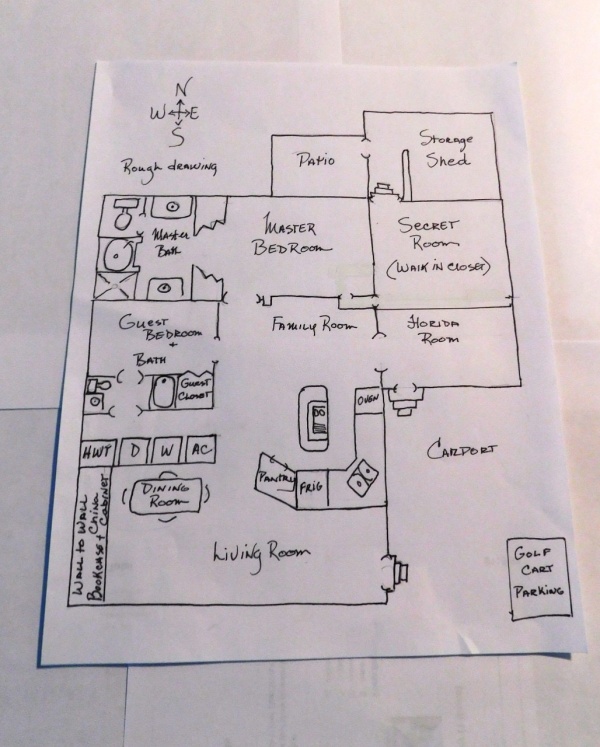 N
W E
S
Rough drawing
Patio
Storage
Shed
Master
Bath
Master
Bedroom
Secret
Room
(Walk in closet)
Guest
Bedroom
+
Bath
Family Room
Florida
Room
Guest
Closet
DO
Oven
HWT
D
W
AC
Pantry
Frig
Carport
Dining
Room
Wall to Wall
Bookcase + China
Cabinet
Living Room
Golf
Cart
Parking